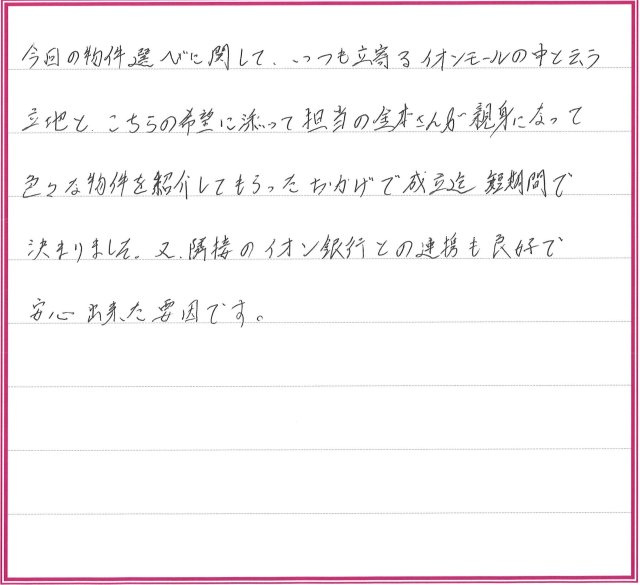 今回の物件選びに関して、いつも立寄るイオンモールの中と云う
立地と、こちらの希望に添って担当の金本さんが親身になって
色々な物件を紹介してもらったおかげで成立迄短期間で
決まりました。又、隣接のイオン銀行との連携も良好で
安心出来た要因です。